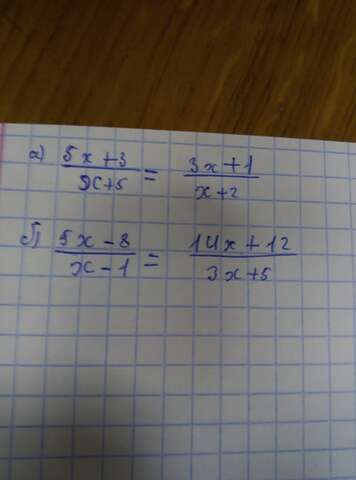 а) (5x+3)/(x+5) = (3x+1)/(x+2)
б) (5x-8)/(x-1) = (14x+12)/(3x+5)